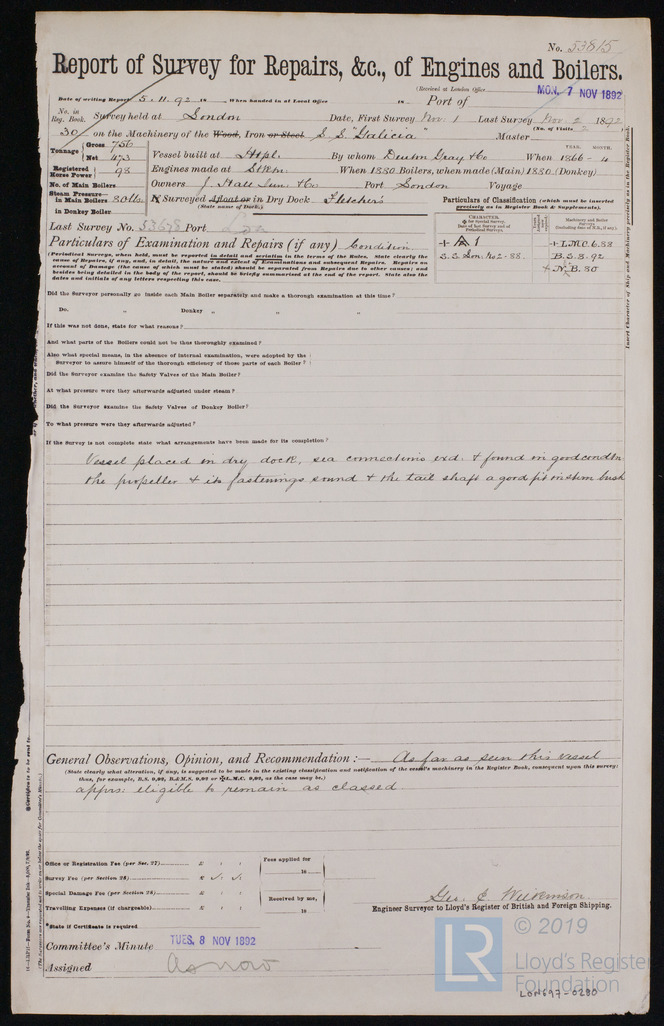 No. 53815
Report of Survey for Repairs, &c., of Engines and Boilers.
(Received at London Office
MON. 7 NOV 1892
Date of writing Report 5.11.92 18 When handed in at Local Office 18 Port of
No. in Reg. Book. Survey held at London Date, First Survey Nov. 1 Last Survey Nov. 2 1892
(No. of Visits 2
30 on the Machinery of the Wood, Iron or Steel S.S "Galicia" Master
Tonnage Gross 756
Net 473
YEAR. MONTH.
Vessel built at Htpl. By whom Denton Gray & Co When 1866 - 4
Registered Horse Power 98
Engines made at When 1880 Boilers, when made (Main) 1880 (Donkey)
No. of Main Boilers
Owners J. Hall Jun. & Co Port London Voyage
Steam Pressure in Main Boilers 80 lbs
in Donkey Boiler
If Surveyed Afloat or in Dry Dock Fletcher's
(State name of Dock.)
Particulars of Classification (which must be inserted precisely as in Register Book & Supplements).
Last Survey No. 53678 Port
CHARACTER.
✠ for Special Survey.
Date of last Survey and of Periodical Surveys.
Machinery and Boiler Surveys
(including date of N.B., if any).
Particulars of Examination and Repairs (if any) Condition
+ A 1
+ L.M.C 6.88
S.S Lon. No 2 - 88.
B.S. 3.92
+ N.B. 80
(Periodical Surveys, when held, must be reported in detail and seriatim in the terms of the Rules. State clearly the
cause of Repairs, if any, and, in detail, the nature and extent of Examinations and subsequent Repairs. Repairs on
account of Damage (the cause of which must be stated) should be separated from Repairs due to other causes; and
besides being detailed in the body of the report, should be briefly summarised at the end of the report. State also the
dates and initials of any letters respecting this case.
Did the Surveyor personally go inside each Main Boiler separately and make a thorough examination at this time?
Do. „ Donkey „ „ „
If this was not done, state for what reasons?
And what parts of the Boilers could not be thus thoroughly examined?
Also what special means, in the absence of internal examination, were adopted by the
Surveyor to assure himself of the thorough efficiency of those parts of each Boiler?
Did the Surveyor examine the Safety Valves of the Main Boiler?
At what pressure were they afterwards adjusted under steam?
Did the Surveyor examine the Safety Valves of Donkey Boiler?
To what pressure were they afterwards adjusted?
If the Survey is not complete state what arrangements have been made for its completion?
Vessel placed in dry dock, sea connections exd. & found in good condtn
the propeller & its fastenings sound & the tail shaft a good fit in stern bush
Insert Character of Ship and Machinery precisely as in the Register Book
General Observations, Opinion, and Recommendation:— As far as seen this vessel
(State clearly what alteration, if any, is suggested to be made in the existing classification and notification of the vessel's machinery in the Register Book, consequent upon this survey;
thus, for example, B.S. 9,92, B.&M.S. 9,92 or ✠L.M.C. 9,92, as the case may be.)
appears eligible to remain as classed
Office or Registration Fee (per Sec. 27) £ : :
Survey Fee (per Section 28) £ : :
Special Damage Fee (per Section 28) £ : :
Travelling Expenses (if chargeable) £ : :
Fees applied for
18
Received by me,
18
*State if Certificate is required
Geo. E. Wilkinson
Engineer Surveyor to Lloyd's Register of British and Foreign Shipping.
Committee's Minute TUES. 8 NOV 1892
Assigned As now
LR
© 2019
Lloyd's Register
Foundation
LON697-0280